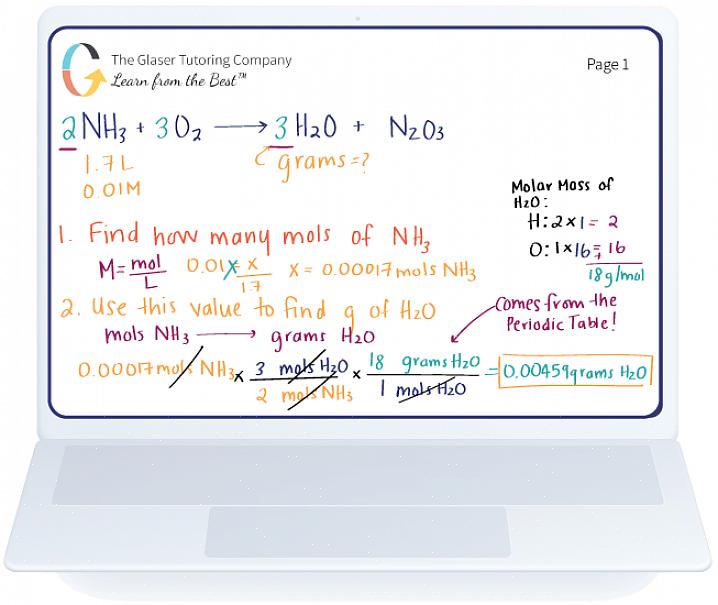 The Glaser Tutoring Company
Learn from the Best™
Page 1
2NH₃ + 3O₂ → 3H₂O + N₂O₃
1.7L
0.01M
grams=?
Molar Mass of
H₂O:
H: 2×1= 2
O: 1×16= 16
+
18g/mol
1. Find how many mols of NH₃
M= mol/L 0.01 = x/17 x = 0.00017 mols NH₃
2. Use this value to find g of H₂O
mols NH₃ → grams H₂O
comes from the
Periodic Table!
0.00017 mols NH₃ x 3 mols H₂O/2 mols NH₃ x 18 grams H₂O/1 mols H₂O = 0.00459grams H₂O